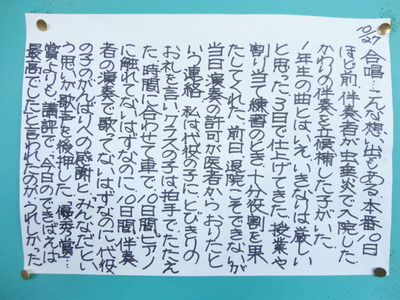 10/27
合唱…こんな想い出もある。本番10日
ほど前、伴奏者が虫垂炎で入院した。
かわりの伴奏を立候補した子がいた。
1年生の曲とはいえ、いきなりは厳しい
と思ったが3日で仕上げてきた。授業や
割り当て練習のとき、十分役割を果
たしてくれた。前日、退院こそできないが
当日、演奏の許可が医者からおりたと
いう連絡。私は代役の子にとびきりの
お礼を言い、クラスの子は拍手でたたえ
た。時間に合わせて車で…10日間、ピアノ
に触れてないはずなのに、10日間、伴奏
者の演奏で歌ってないはずなのに、代役
の子のがんばりへの感謝と、みんなだ…とい
う思いが歌声を後押しした。優秀賞…
賞よりも講評で、「今日のできばえは
最高でした」と言われたのが、うれしかった